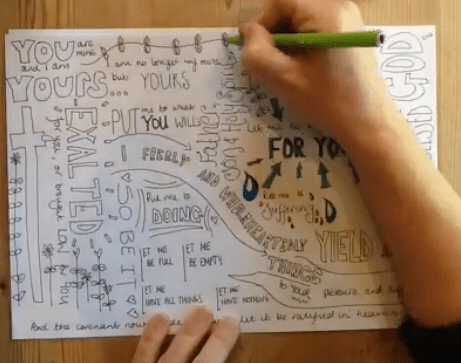 YOU are mine
and I am
YOURS
I am no longer my own
but YOURS
PUT me to what
YOU WILL
EXALTED
for you, or brought low by you
I FREELY
AND WHOLEHEARTEDLY
YIELD
THINGS
to your pleasure and
Father
Son & Holy Spirit
Let me
FOR YO
GOD
put me to
DOING
put me to
suffering
SO BE IT
LET ME
BE FULL
LET ME
BE EMPTY
LET ME
HAVE ALL THINGS
LET ME
HAVE NOTHING
And the covenant now let it be ratified in heaven